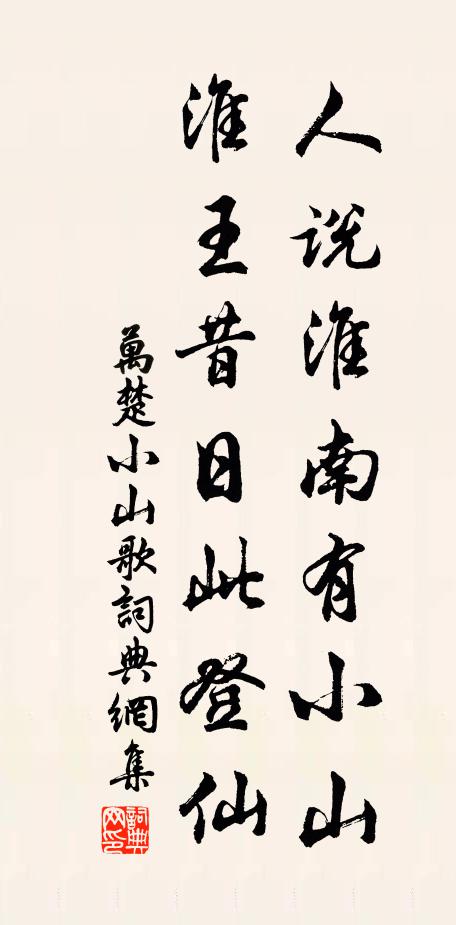 人說淮南有小山
淮王昔日此登仙
萬楚小山歌詞典網集
詞典網印